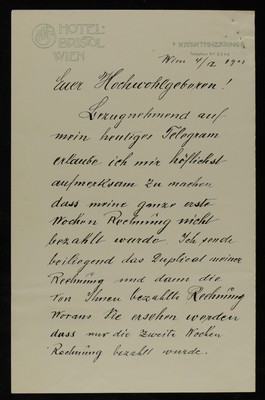 HOTEL
BRISTOL
WIEN
Wien 4/12 19
Euer Hochwohlgeboren!
Bezugnehmend auf
mein heutiges Telegram
erlaube ich mir höflichst
aufmerksam zu machen
dass meine ganze erste
Wochen Rechnung nicht
bezahlt wurde. Ich sende
beiliegend das Duplicat meiner
Rechnung und dann die
von Ihnen bezahlte Rechnung
Woraus Sie ersehen werden
dass nur die zweite Wochen
Rechnung bezahlt wurde.